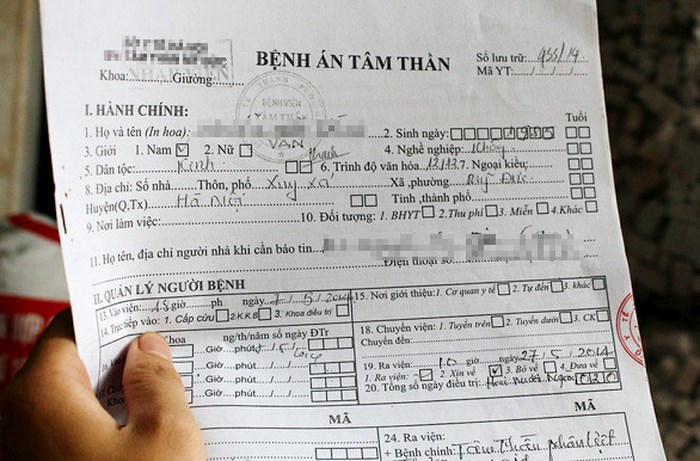 BỆNH ÁN TÂM THẦN
Số lưu trữ: 935/14
Khoa: Giường:
Mã YT:
I. HÀNH CHÍNH:
Tuổi
1. Họ và tên (In hoa) VAN 2. Sinh ngày: 1985
3. Giới 1. Nam 2. Nữ 4. Nghề nghiệp: không
5. Dân tộc: Kinh 6. Trình độ văn hóa 12/12 7. Ngoại kiều:
8. Địa chỉ: Số nhà Thôn, phố Xuy xá Xã, phường
Huyện(Q,Tx) Hà Nội Tỉnh, thành phố
9. Nơi làm việc: 10. Đối tượng: 1. BHYT 2. Thu phí 3. Miễn 4. Khác
11. Họ tên, địa chỉ người nhà khi cần báo tin
Điện thoại số
II. QUẢN LÝ NGƯỜI BỆNH
13. Vào viện: giờ ph ngày
14. Trực tiếp vào: 1. Cấp cứu 2. K.K.B 3. Khoa điều trị
Khoa ng/th/năm số ngày ĐTr
Giờ phút
Giờ phút
Giờ phút
Giờ phút
Khoa
15. Nơi giới thiệu: 1. Cơ quan y tế 2. Tự đến 3. khác
18. Chuyển viện: 1. Tuyến trên 2. Tuyến dưới 3. CK
Chuyển đến:
19. Ra viện: 10 giờ ngày 27/5/2014
1. Ra viện: 2. Xin về 3. Bỏ về 4. Đưa về
20. Tổng số ngày điều trị: Hai mươi ngày 020
MÃ
MÃ
24. Ra viện:
+ Bệnh chính: Tâm thần phân liệt